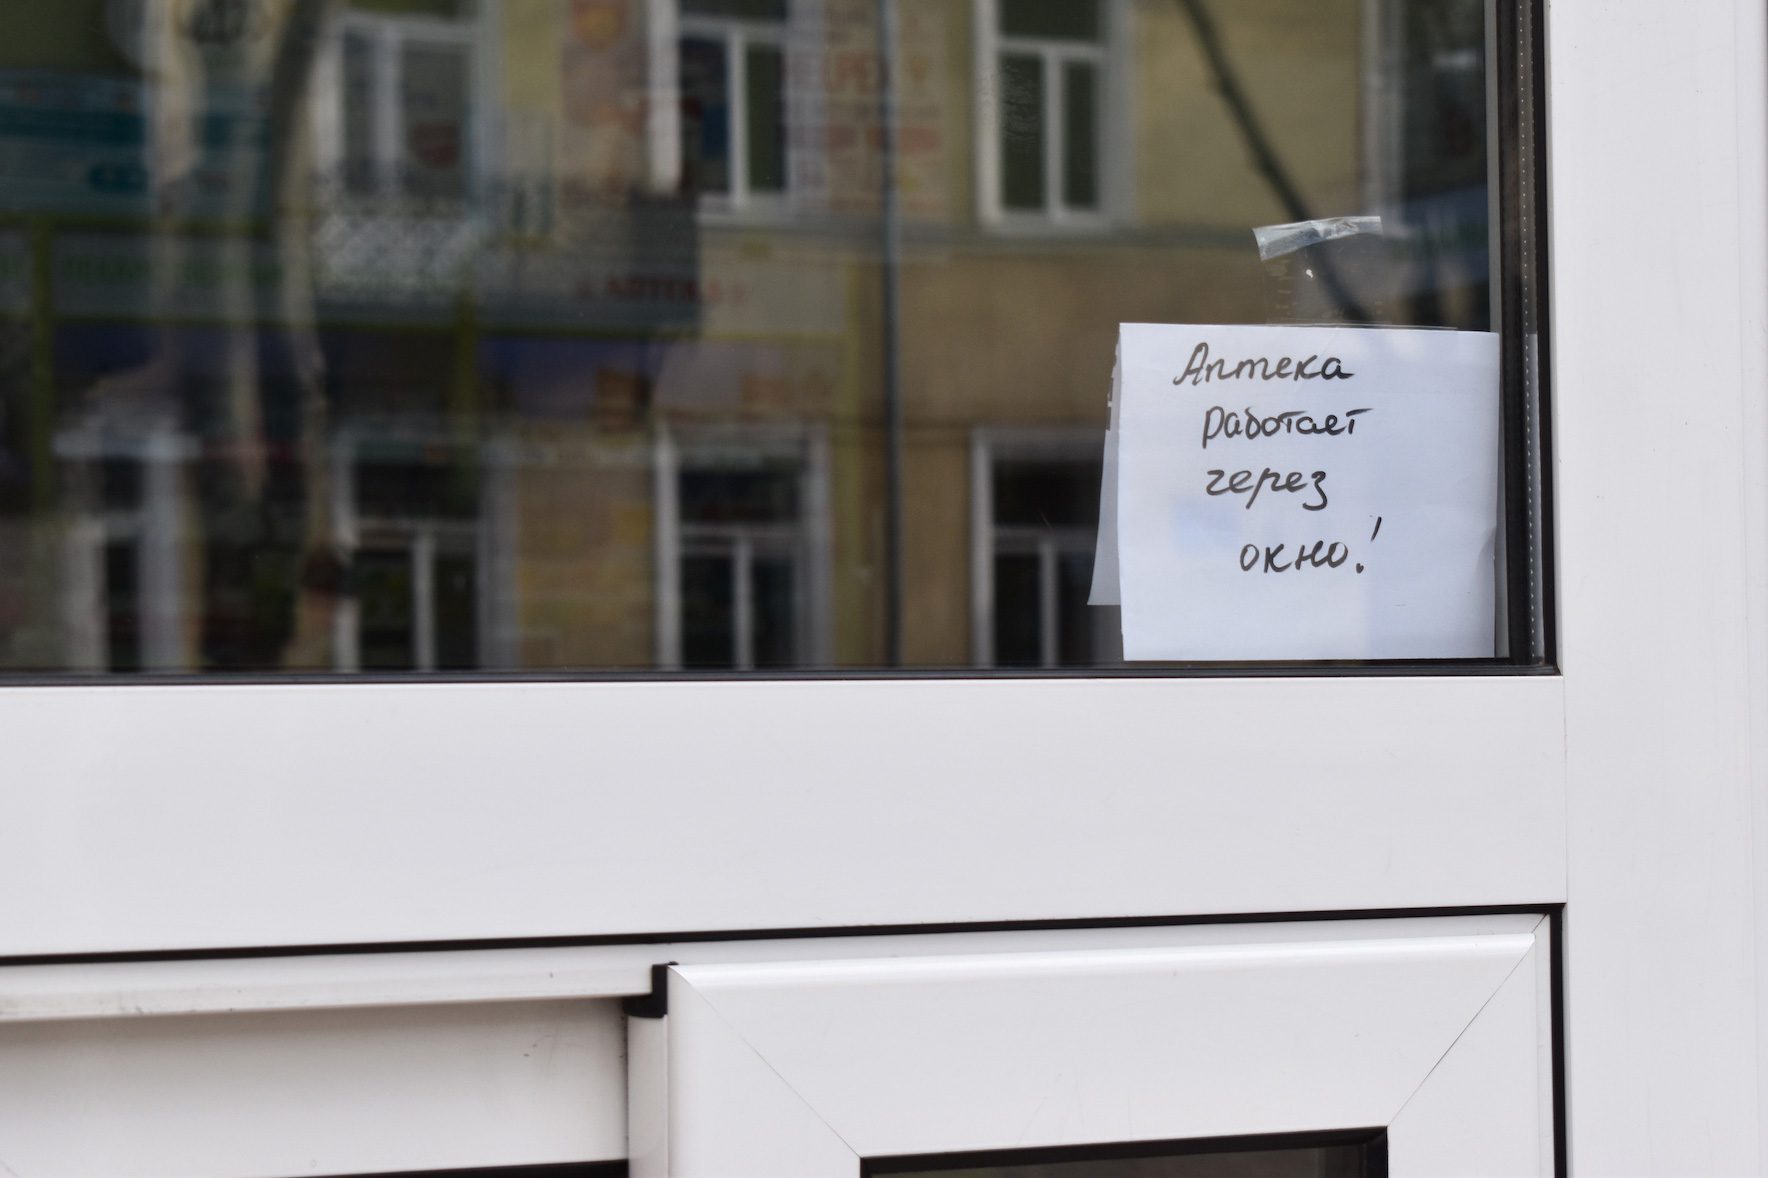 Аптека
работает
через
окно!